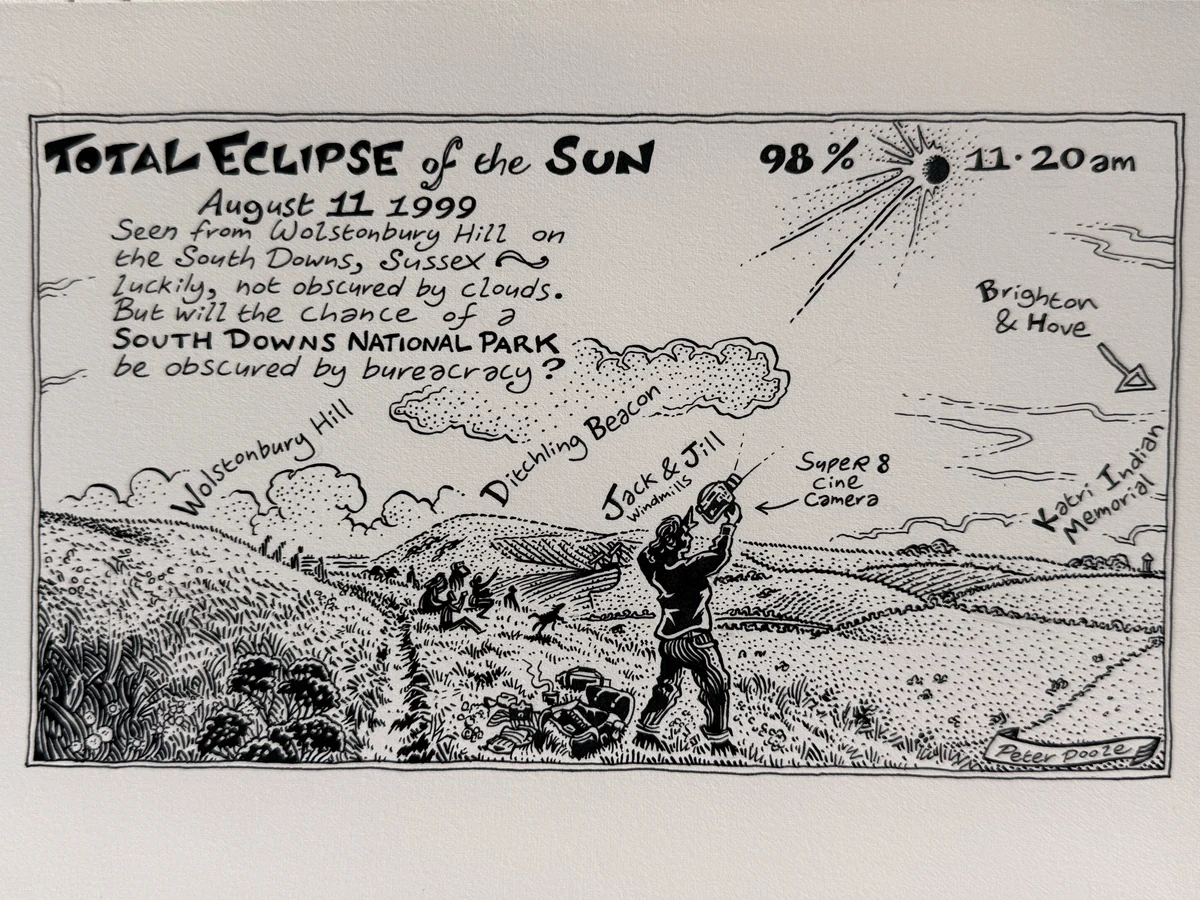 TOTAL ECLIPSE of the SUN
August 11 1999
Seen from Wolstonbury Hill on
the South Downs, Sussex ~
luckily, not obscured by clouds.
But will the chance of a
SOUTH DOWNS NATIONAL PARK
be obscured by bureacracy?
98%
11·20am
Brighton
& Hove
Wolstonbury Hill
Ditchling Beacon
Jack & Jill
Windmills
SUPER 8
cine
Camera
Katri Indian
Memorial
Peter Poole